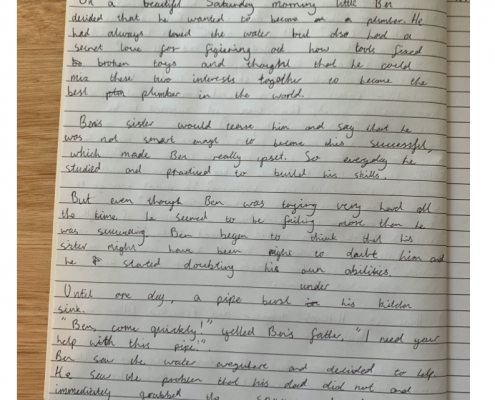 On a beautiful Saturday morning little Ben
decided that he wanted to become a plumber. He
had always loved the water but also had a
secret love for figuring out how tools fixed
broken toys and thought that he could
mix these two interests together to become the
best plumber in the world.
Ben's sister would tease him and say that he
was not smart enough to become this successful,
which made Ben really upset. So everyday he
studied and practised to build his skills.
But even though Ben was trying very hard all
the time he seemed to be failing more than he
was succeeding. Ben began to think that his
sister might have been right to doubt him and
he started doubting his own abilities.
under
Until one day, a pipe burst in his kitchen
sink.
"Ben, come quickly!" yelled Ben's father, "I need your
help with this pipe."
Ben saw the water everywhere and decided to help.
He saw the problem that his dad did not and
immediately grabbed the